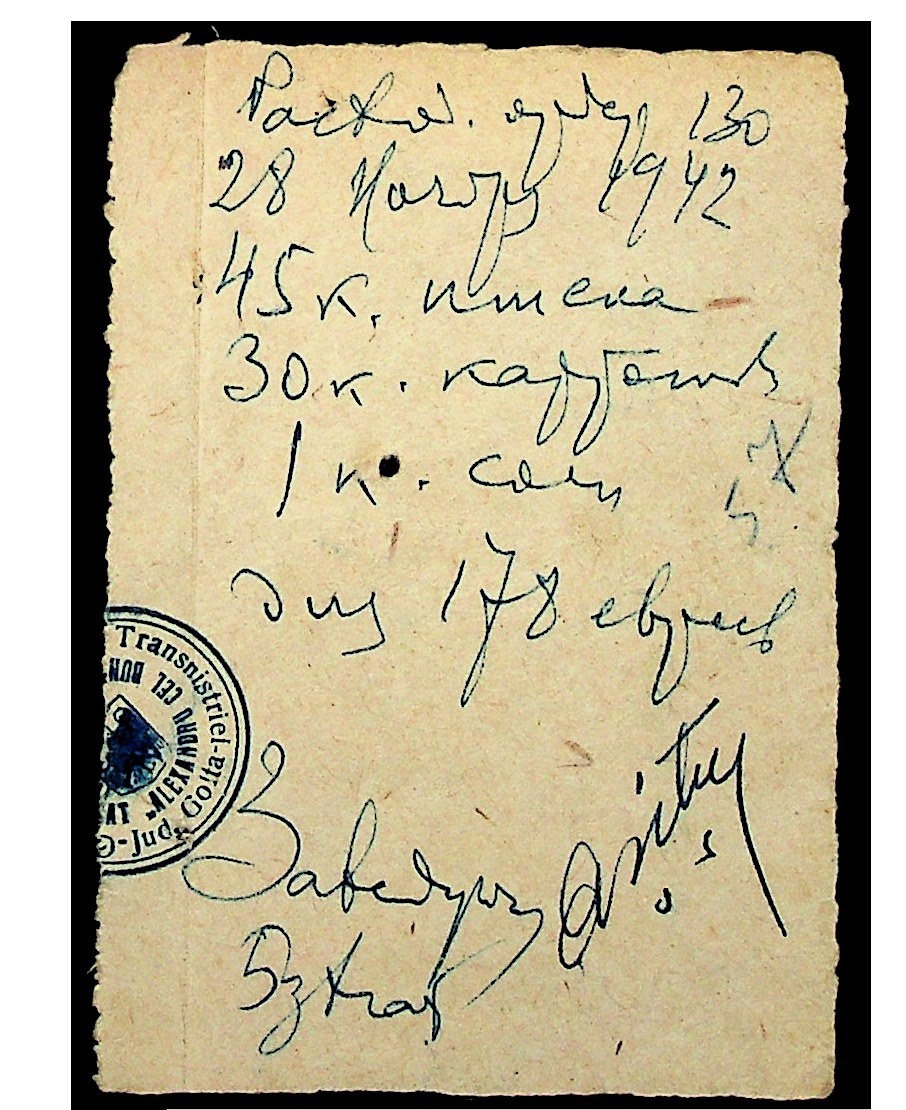 Расход. ордер 130
28 Ноября 1942
45 к. пшена
30 к. картошкы
1 к. соли
для 178 евреев
Transnistriei-
CEL BUN
"ALEXANDRU
AT
-Jud. Golta-
Заведующ